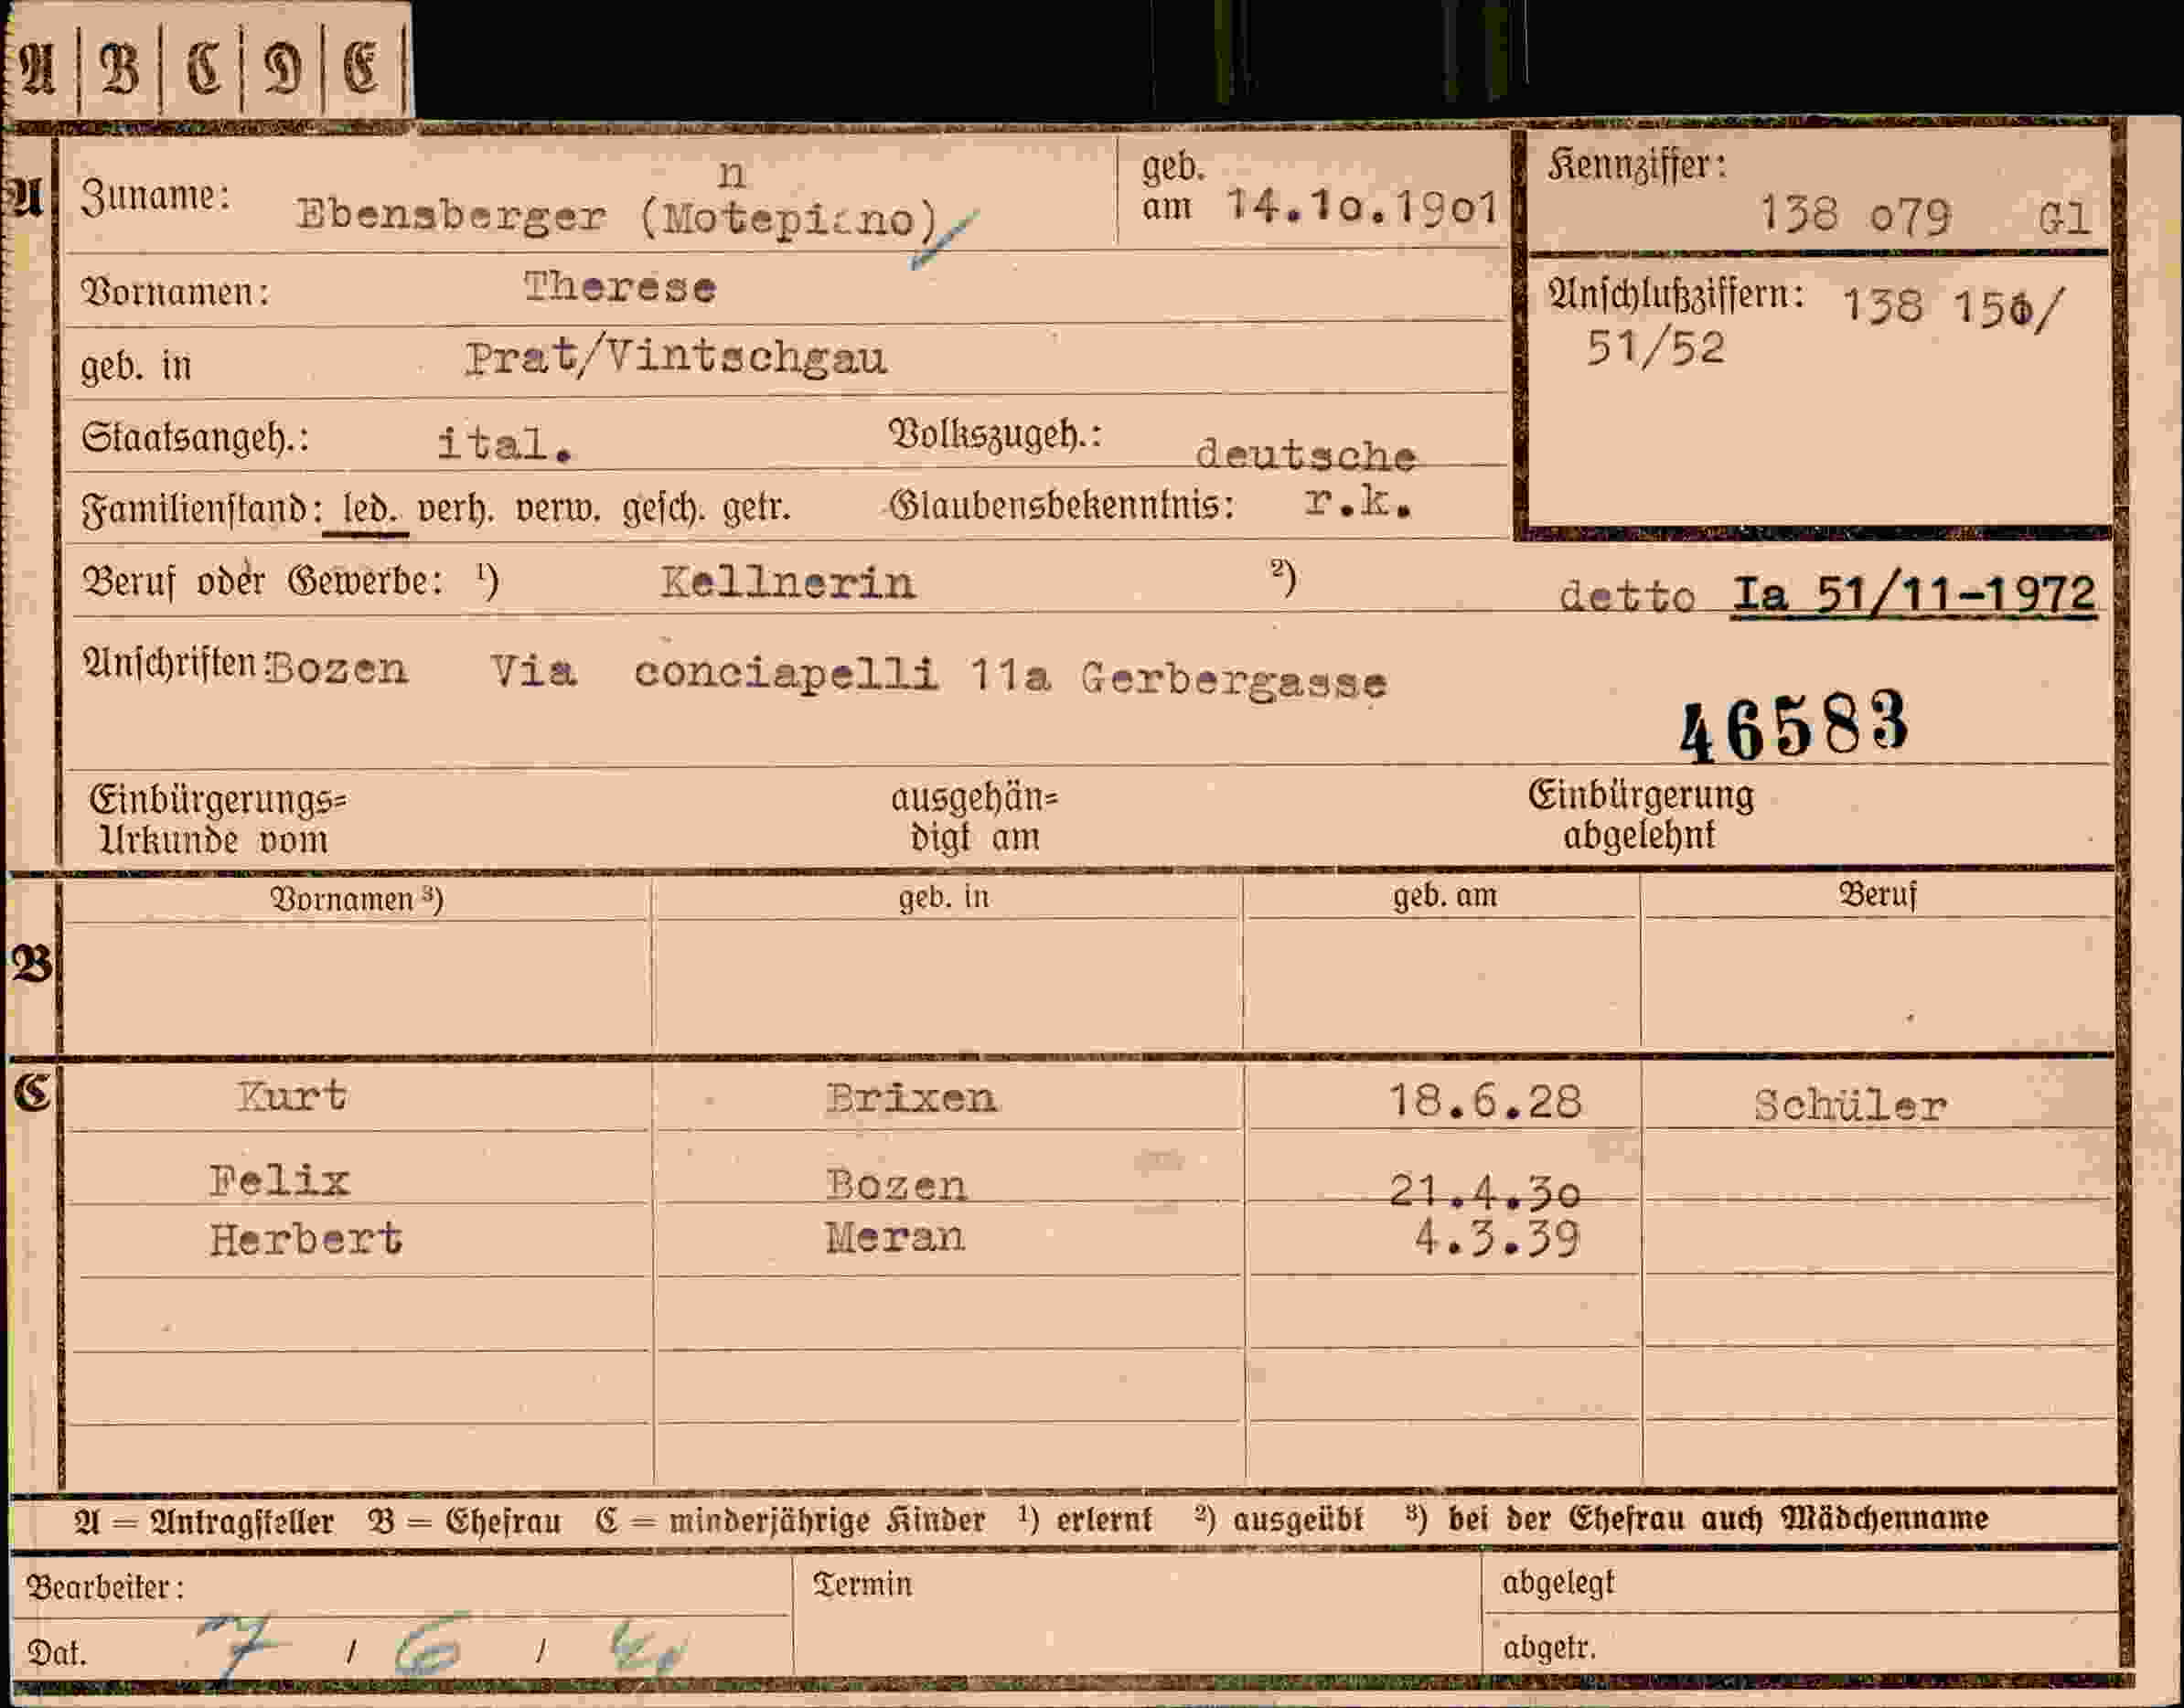 A | B | C | D | E |
A
Zuname: Ebensberger (Motepiano)
n
geb. am 14.10.1901
Kennziffer: 138 079 Gl
Vornamen: Therese
Anschlußziffern: 138 150/
51/52
geb. in Prat/Vintschgau
Staatsangeh.: ital. Volkszugeh.: deutsche
Familienstand: led. verh. verw. gesch. getr. Glaubensbekenntnis: r.k.
Beruf oder Gewerbe: ¹) Kellnerin ²) detto Ia 51/11-1972
Anschriften: Bozen Via conciapelli 11a Gerbergasse
46583
Einbürgerungs= ausgehän= Einbürgerung
Urkunde vom digt am abgelehnt
Vornamen ³) geb. in geb. am Beruf
B
C Kurt Brixen 18.6.28 Schüler
Felix Bozen 21.4.30
Herbert Meran 4.3.39
A = Antragsteller B = Ehefrau C = minderjährige Kinder ¹) erlernt ²) ausgeübt ³) bei der Ehefrau auch Mädchenname
Bearbeiter: Termin abgelegt
Dat. 7 / 6 / abgetr.